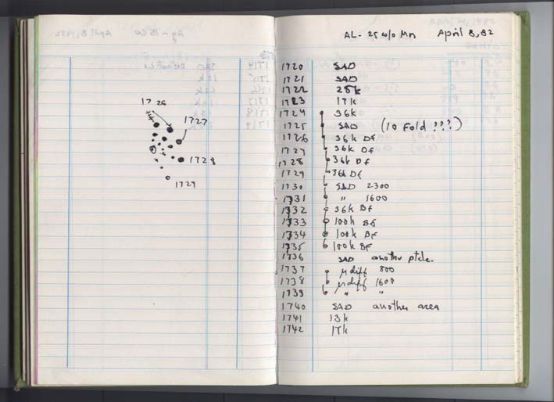 1726
1727
1728
1729
AL- 25 w/o Mn April 8, 82
1720 SAD
1721 SAD
1722 25k
1723 17k
1724 36k
1725 SAD (10 Fold ???)
1726 36k Df
1727 36k Df
1728 36k Df
1729 36k Df
1730 SAD 2300
1731 " 1600
1732 36k Df
1733 100k Df
1734 100k Df
1735 100k Df
1736 SAD another ptcle.
1737 μdiff 800
1738 μdiff 1600
1739 " "
1740 SAD another area
1741 13k
1742 17k